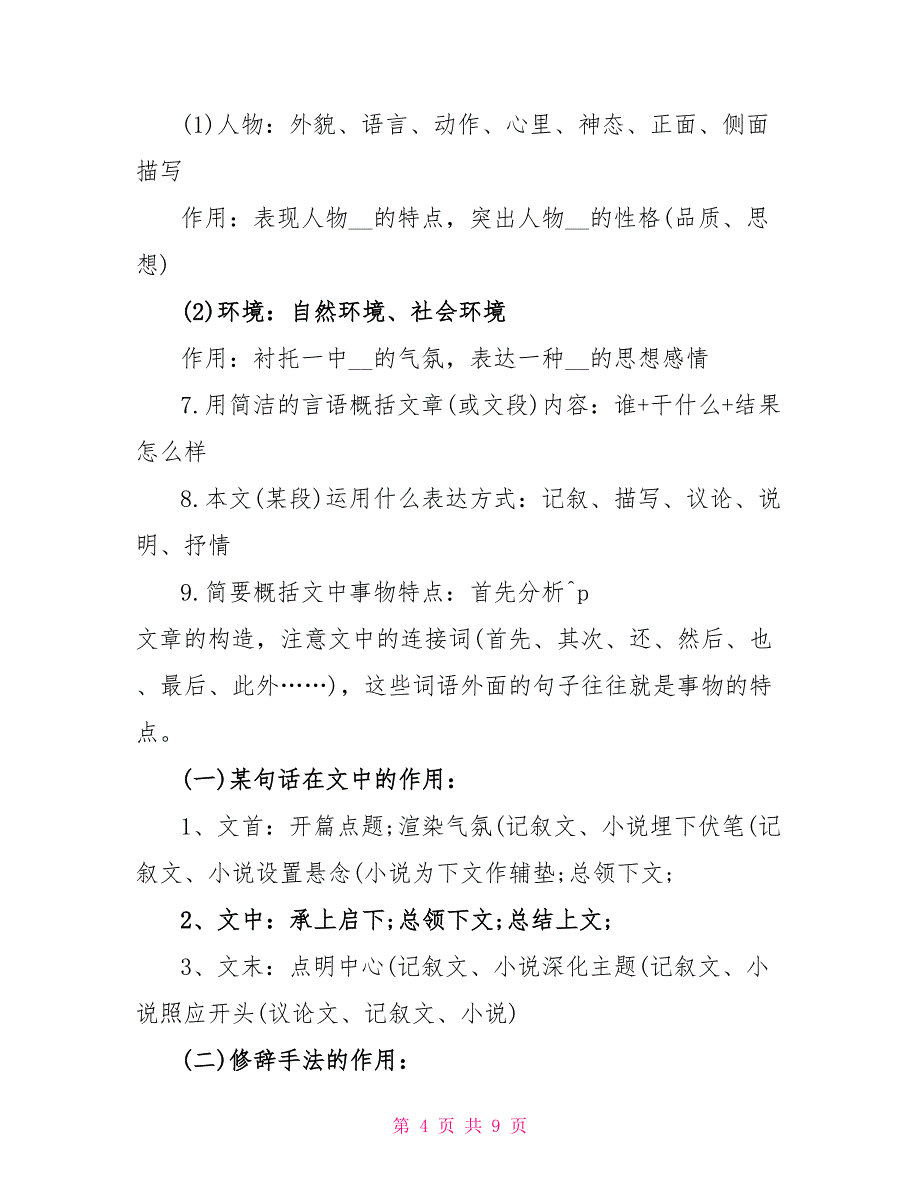 (1)人物：外貌、语言、动作、心里、神态、正面、侧面
描写
作用：表现人物__的特点，突出人物__的性格(品质、思
想)
(2)环境：自然环境、社会环境
作用：衬托一中__的气氛，表达一种__的思想感情
7.用简洁的言语概括文章(或文段)内容：谁+干什么+结果
怎么样
8.本文(某段)运用什么表达方式：记叙、描写、议论、说
明、抒情
9.简要概括文中事物特点：首先分析^p
文章的构造，注意文中的连接词(首先、其次、还、然后、也
、最后、此外……)，这些词语外面的句子往往就是事物的特
点。
(一)某句话在文中的作用：
1、文首：开篇点题;渲染气氛(记叙文、小说埋下伏笔(记
叙文、小说设置悬念(小说为下文作辅垫;总领下文;
2、文中：承上启下;总领下文;总结上文;
3、文末：点明中心(记叙文、小说深化主题(记叙文、小
说照应开头(议论文、记叙文、小说)
(二)修辞手法的作用：
第 4 页 共 9 页